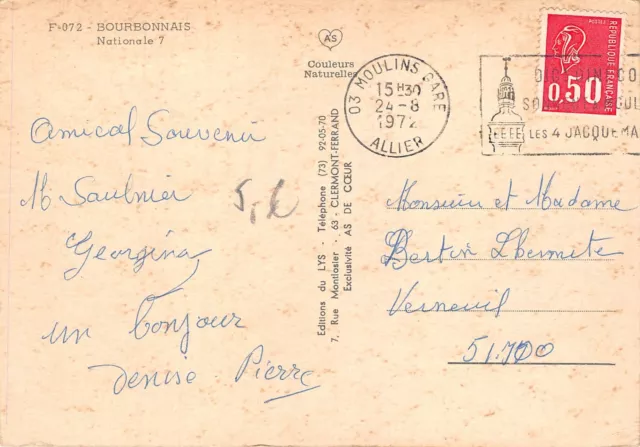 F-072 - BOURBONNAIS
Nationale 7
AS
Couleurs
Naturelles
Amical Souvenir
M Saulnier
Georgina
un bonjour
Denise Pierre
Editions du LYS - Téléphone (73) 92-05-70
7, Rue Montlosier - 63 - CLERMONT-FERRAND
Exclusivité AS DE CŒUR
03 MOULINS GARE
15 H 30
24-8
1972
ALLIER
REPUBLIQUE FRANÇAISE
0,50
LES 4 JACQUEMA
Monsieur et Madame
Bertin Lhermite
Verneuil
51.700